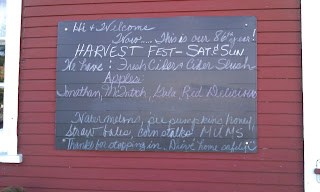 Hi & Welcome
Wow.... This is our 86th year!
HARVEST FEST - SAT & SUN
We have: Fresh Cider & Cider Slush
Apples:
Jonathan, McIntosh, Gala, Red Delicious
Watermelons, pie pumpkins, honey
Straw bales, corn stalks! MUMS
Thanks for stopping in. Drive home safely